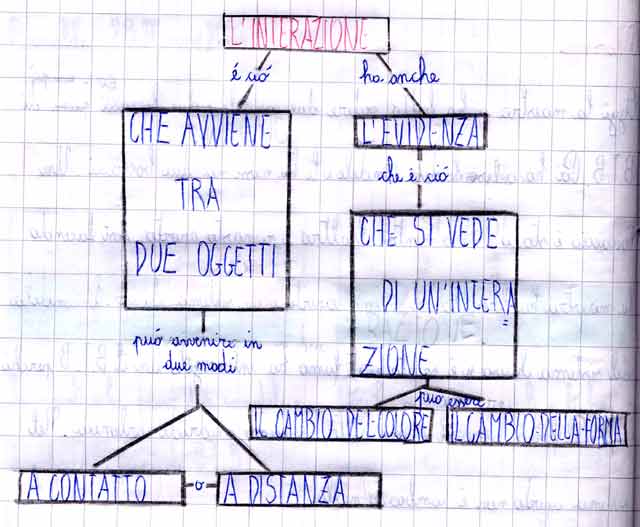 L'INTERAZIONE
é ció
ha anche
CHE AVVIENE
TRA
DUE OGGETTI
L'EVIDENZA
che é ció
CHE SI VEDE
DI UN'INTERA
=
ZIONE
può avvenire in
due modi
può essere
IL CAMBIO DEL COLORE
IL CAMBIO DELLA FORMA
A CONTATTO
o
A DISTANZA